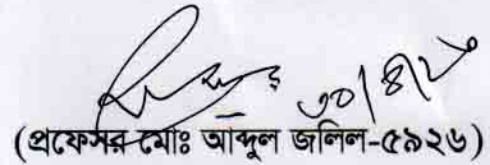 ৩০/৪/২০
(প্রফেসর মোঃ আব্দুল জলিল-৫৯২৬)